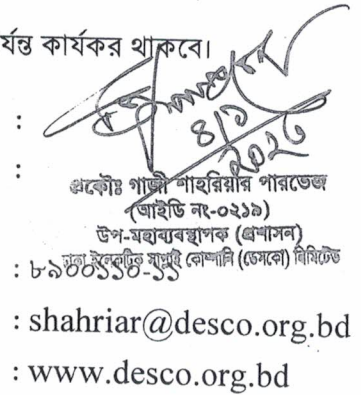 র্যন্ত কার্যকর থাকবে।
:
৪/১
২০২৩
:
প্রকৌঃ গাজী শাহরিয়ার পারভেজ
(আইডি নং-০২১৯)
উপ-মহাব্যবস্থাপক (প্রশাসন)
ঢাকা ইলেকট্রিক সাপ্লাই কোম্পানি (ডেসকো) লিমিটেড
: ৮৯০০১১০-১১
: shahriar@desco.org.bd
: www.desco.org.bd